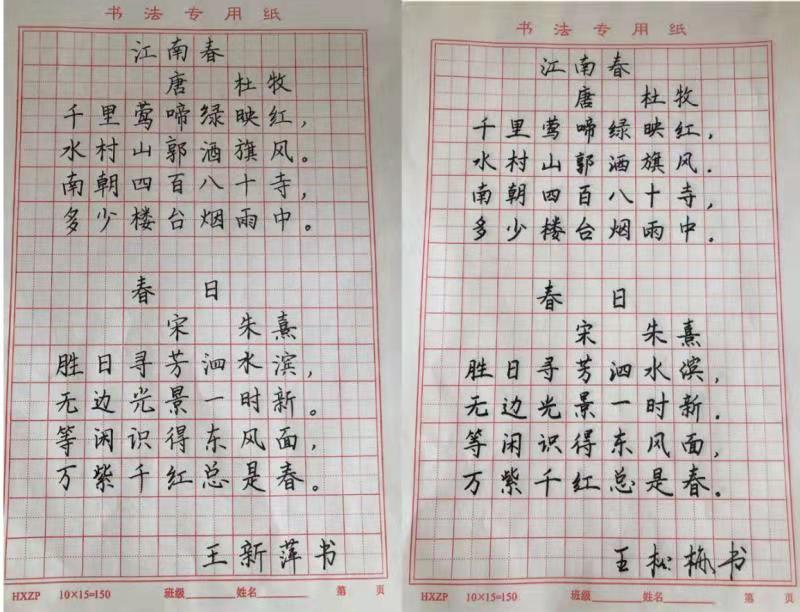 书法专用纸
江南春
唐 杜牧
千里莺啼绿映红，
水村山郭酒旗风。
南朝四百八十寺，
多少楼台烟雨中。
春 日
宋 朱熹
胜日寻芳泗水滨，
无边光景一时新。
等闲识得东风面，
万紫千红总是春。
王新萍书
HXZP 10×15=150 班级 姓名 第 页
书法专用纸
江南春
唐 杜牧
千里莺啼绿映红，
水村山郭酒旗风.
南朝四百八十寺，
多少楼台烟雨中.
春 日
宋 朱熹
胜日寻芳泗水滨，
无边光景一时新.
等闲识得东风面，
万紫千红总是春.
王松梅书
HXZP 10×15=150 班级 姓名 第 页